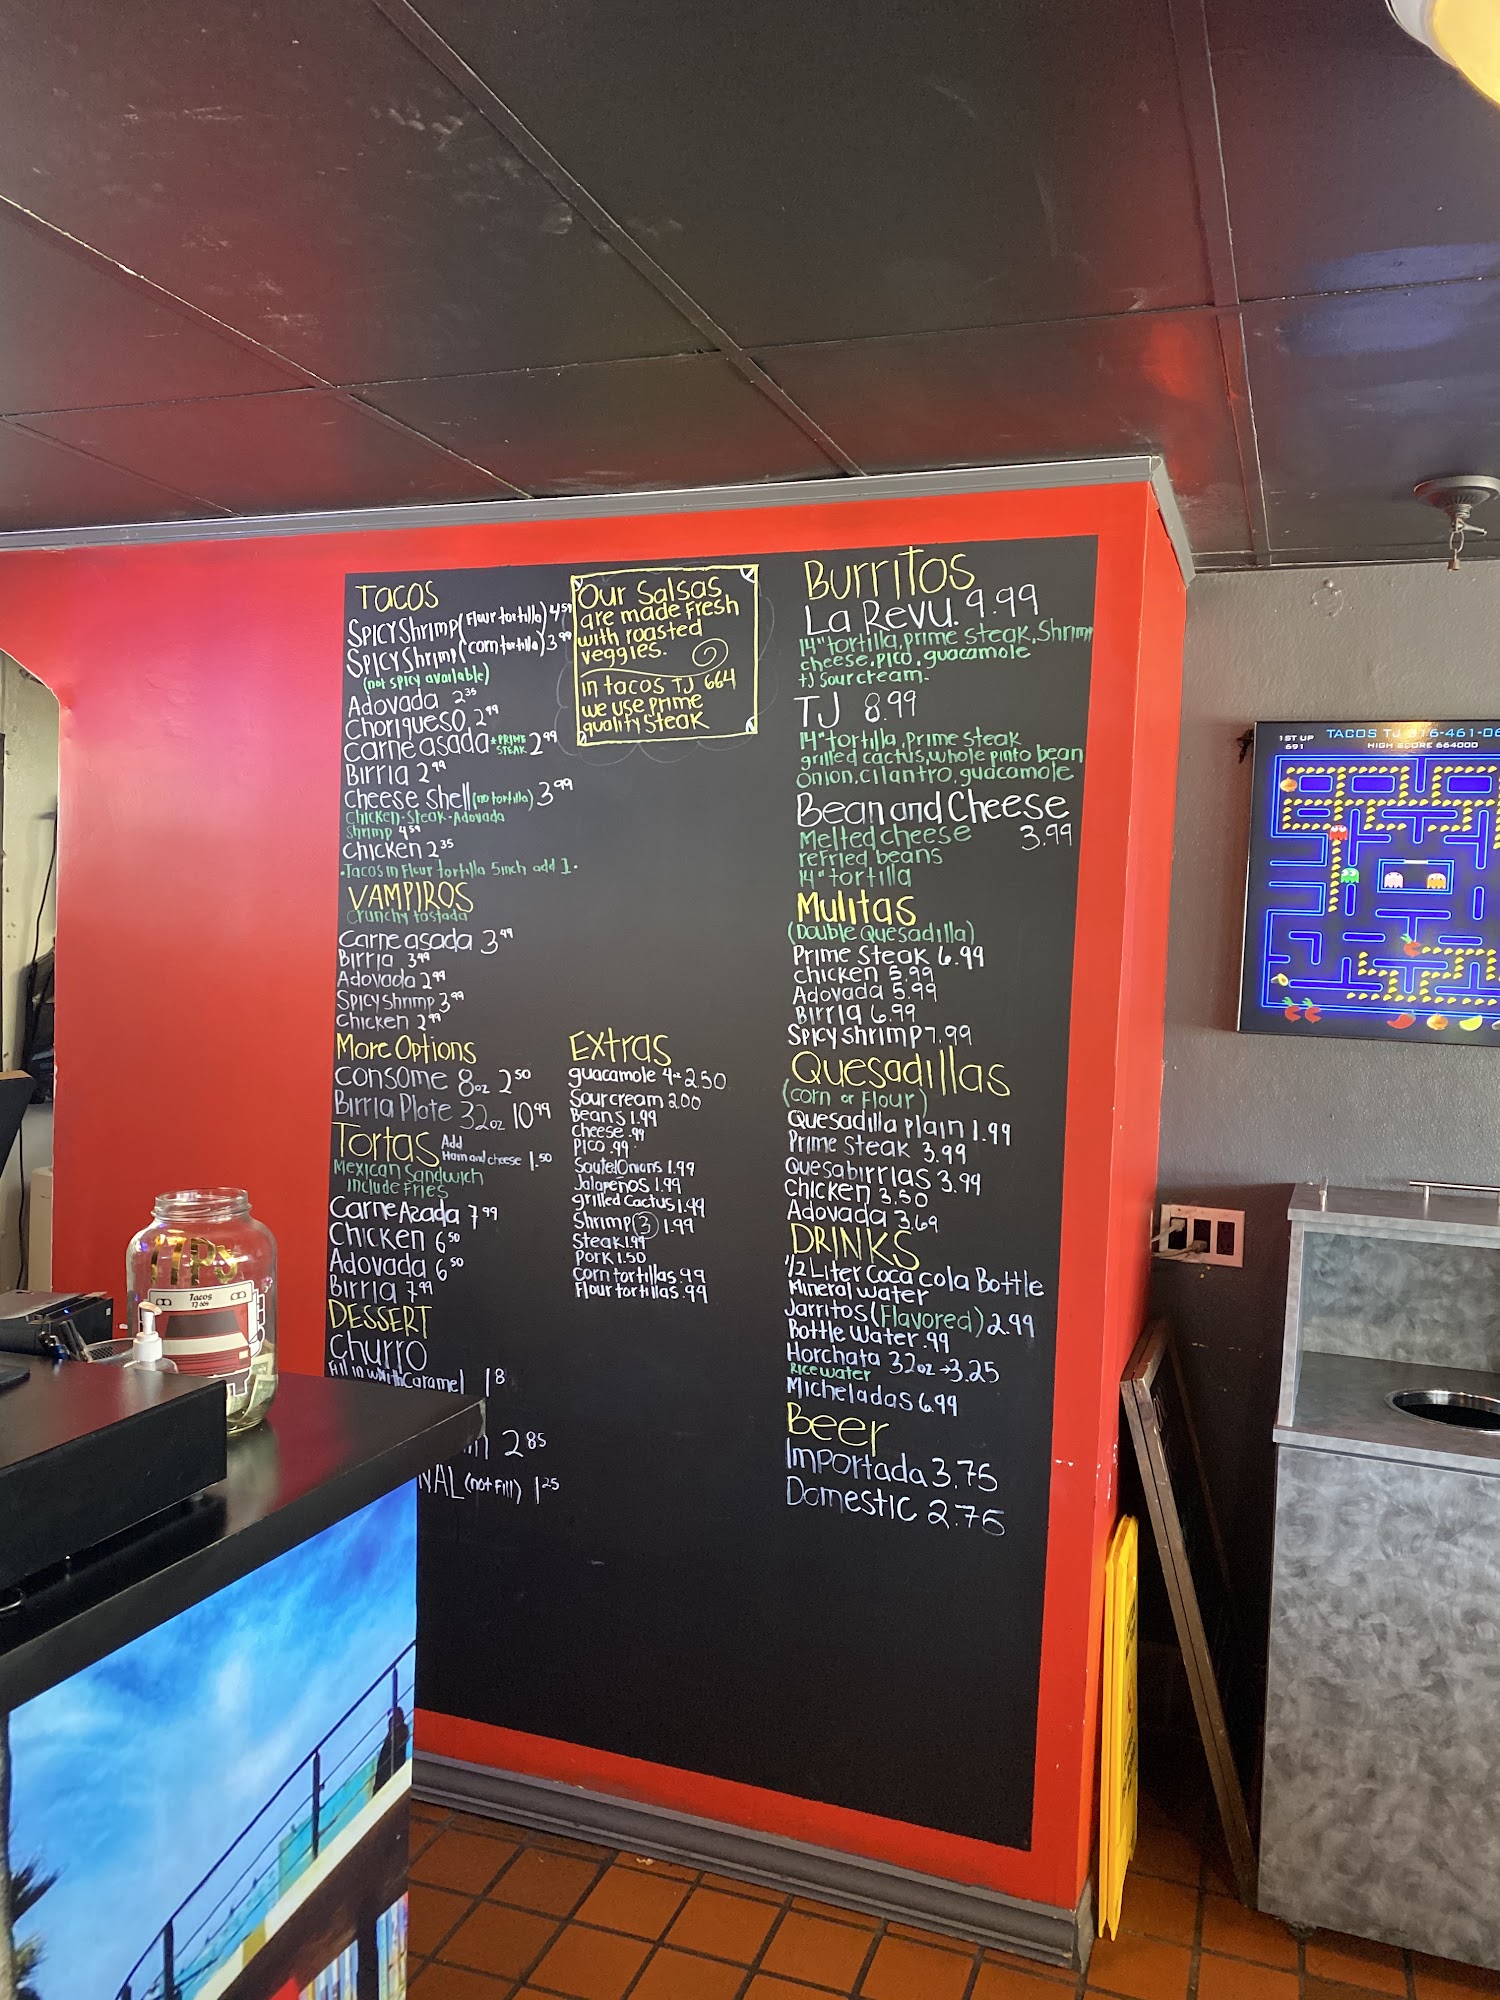 TACOS
SPICY Shrimp (Flour tortilla) 4.59
SPICY Shrimp (corn tortilla) 3.99
(not spicy available)
Adovada 2.35
Chorigueso 2.99
Carne asada *PRIME STEAK 2.99
Birria 2.99
Cheese Shell (no tortilla) 3.99
Chicken-Steak-Adovada
Shrimp 4.59
Chicken 2.35
•Tacos in Flour tortilla 5inch add 1.
VAMPIROS
Crunchy tostada
Carne asada 3.99
Birria 3.99
Adovada 2.99
SPICY Shrimp 3.99
Chicken 2.99
More Options
Consome 8oz 2.50
Birria Plate 32oz 10.99
Tortas Add
Ham and cheese 1.50
Mexican Sandwich
include Fries
Carne Azada 7.99
Chicken 6.50
Adovada 6.50
Birria 7.99
DESSERT
Churro
Caramel
2.85
(not Fill) 1.25
Our Salsas
are made Fresh
with roasted
veggies.
in tacos TJ 664
we use prime
quality Steak
Extras
guacamole 4oz 2.50
Sour cream 2.00
Beans 1.99
Cheese .99
Pico .99
1.99
Jalapeños 1.99
grilled Cactus 1.99
Shrimp (3) 1.99
Steak 1.99
Pork 1.50
Corn tortillas .99
Flour tortillas .99
Burritos
La Revu. 9.99
14" tortilla, prime steak, Shrimp
cheese, pico, guacamole
TJ Sour cream.
TJ 8.99
14" tortilla, Prime steak
grilled cactus, whole pinto bean
onion, cilantro, guacamole
Bean and Cheese
Melted cheese 3.99
refried beans
14" tortilla
Mulitas
(Double Quesadilla)
Prime Steak 6.99
Chicken 5.99
Adovada 5.99
Birria 6.99
Spicy Shrimp 7.99
Quesadillas
(corn or Flour)
Quesadilla plain 1.99
Prime Steak 3.99
Quesabirrias 3.99
Chicken 3.50
Adovada 3.69
DRINKS
1/2 Liter Coca cola Bottle
Mineral Water
Jarritos (Flavored) 2.99
Bottle Water .99
Horchata 32oz → 3.25
Rice water
Micheladas 6.99
Beer
Importada 3.75
Domestic 2.75
1ST UP
691
TACOS TJ
HIGH SCORE 664000
TIPS
Tacos